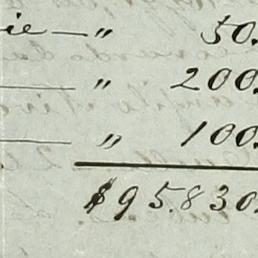 ie — " 50.
— " 200.
— " 100.
$95.830.